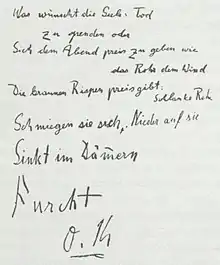 Was wünscht die Seele: Tod
zu spenden oder
Sich dem Abend preis zu geben wie
das Rohr dem Wind
Die braunen Rispen preisgibt.
Schlanke
Schmiegen sie sich, Nieder auf sie
Sinkt im Dämmern
Furcht
O. K